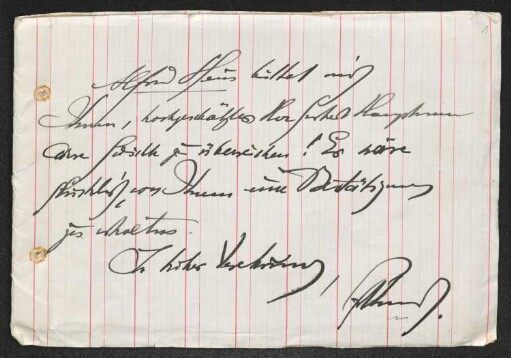 Alfred Heus bittet mich
Ihnen, hochgeschätzter Herr Gerhart Hauptmann
diese zu überreichen! Es wäre
von Ihnen eine Bestätigung
zu erhalten.
In hoher Verehrung,
1